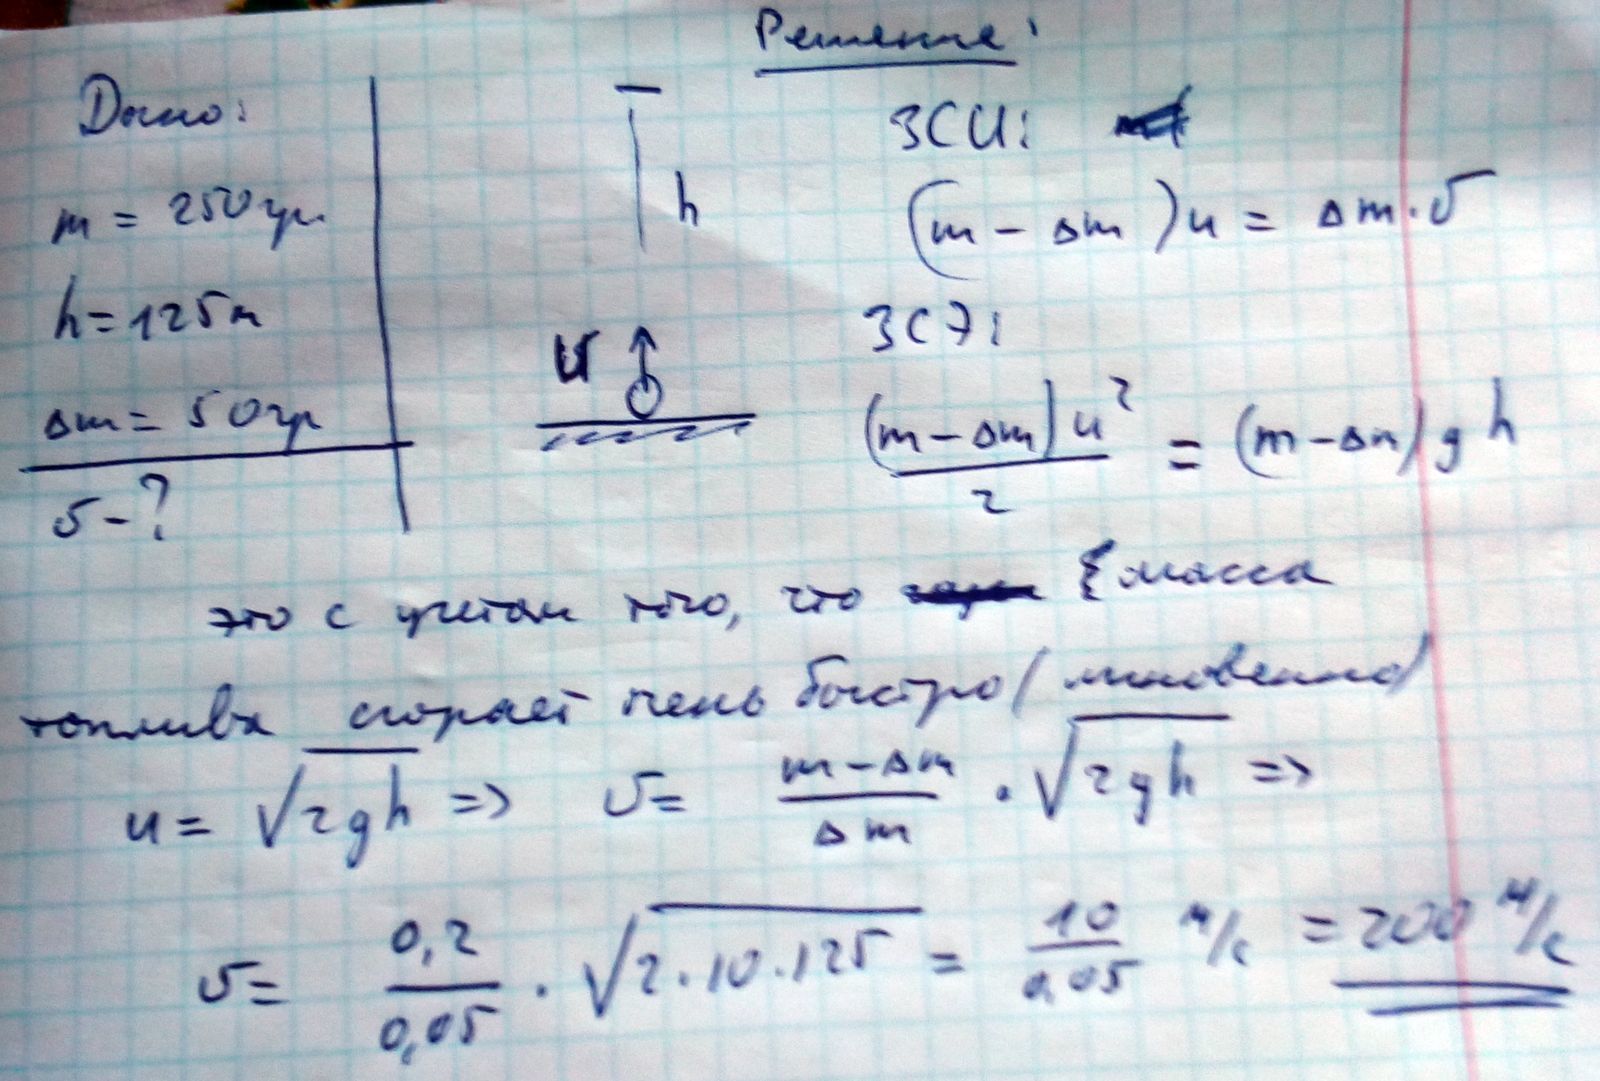 Решение:
Дано:
m = 250 гр.
h = 125 м
Δm = 50 гр
υ - ?
h
u
ЗСИ:
(m - Δm)u = Δm · υ
ЗСЭ:
(m - Δm)u² / 2 = (m - Δm)gh
это с учетом того, что { масса
топлива сгорает чень быстро (мгновенно)
u = √2gh => υ = (m - Δm) / Δm · √2gh =>
υ = 0,2 / 0,05 · √2·10·125 = 10 / 0,05 м/с = 200 м/с